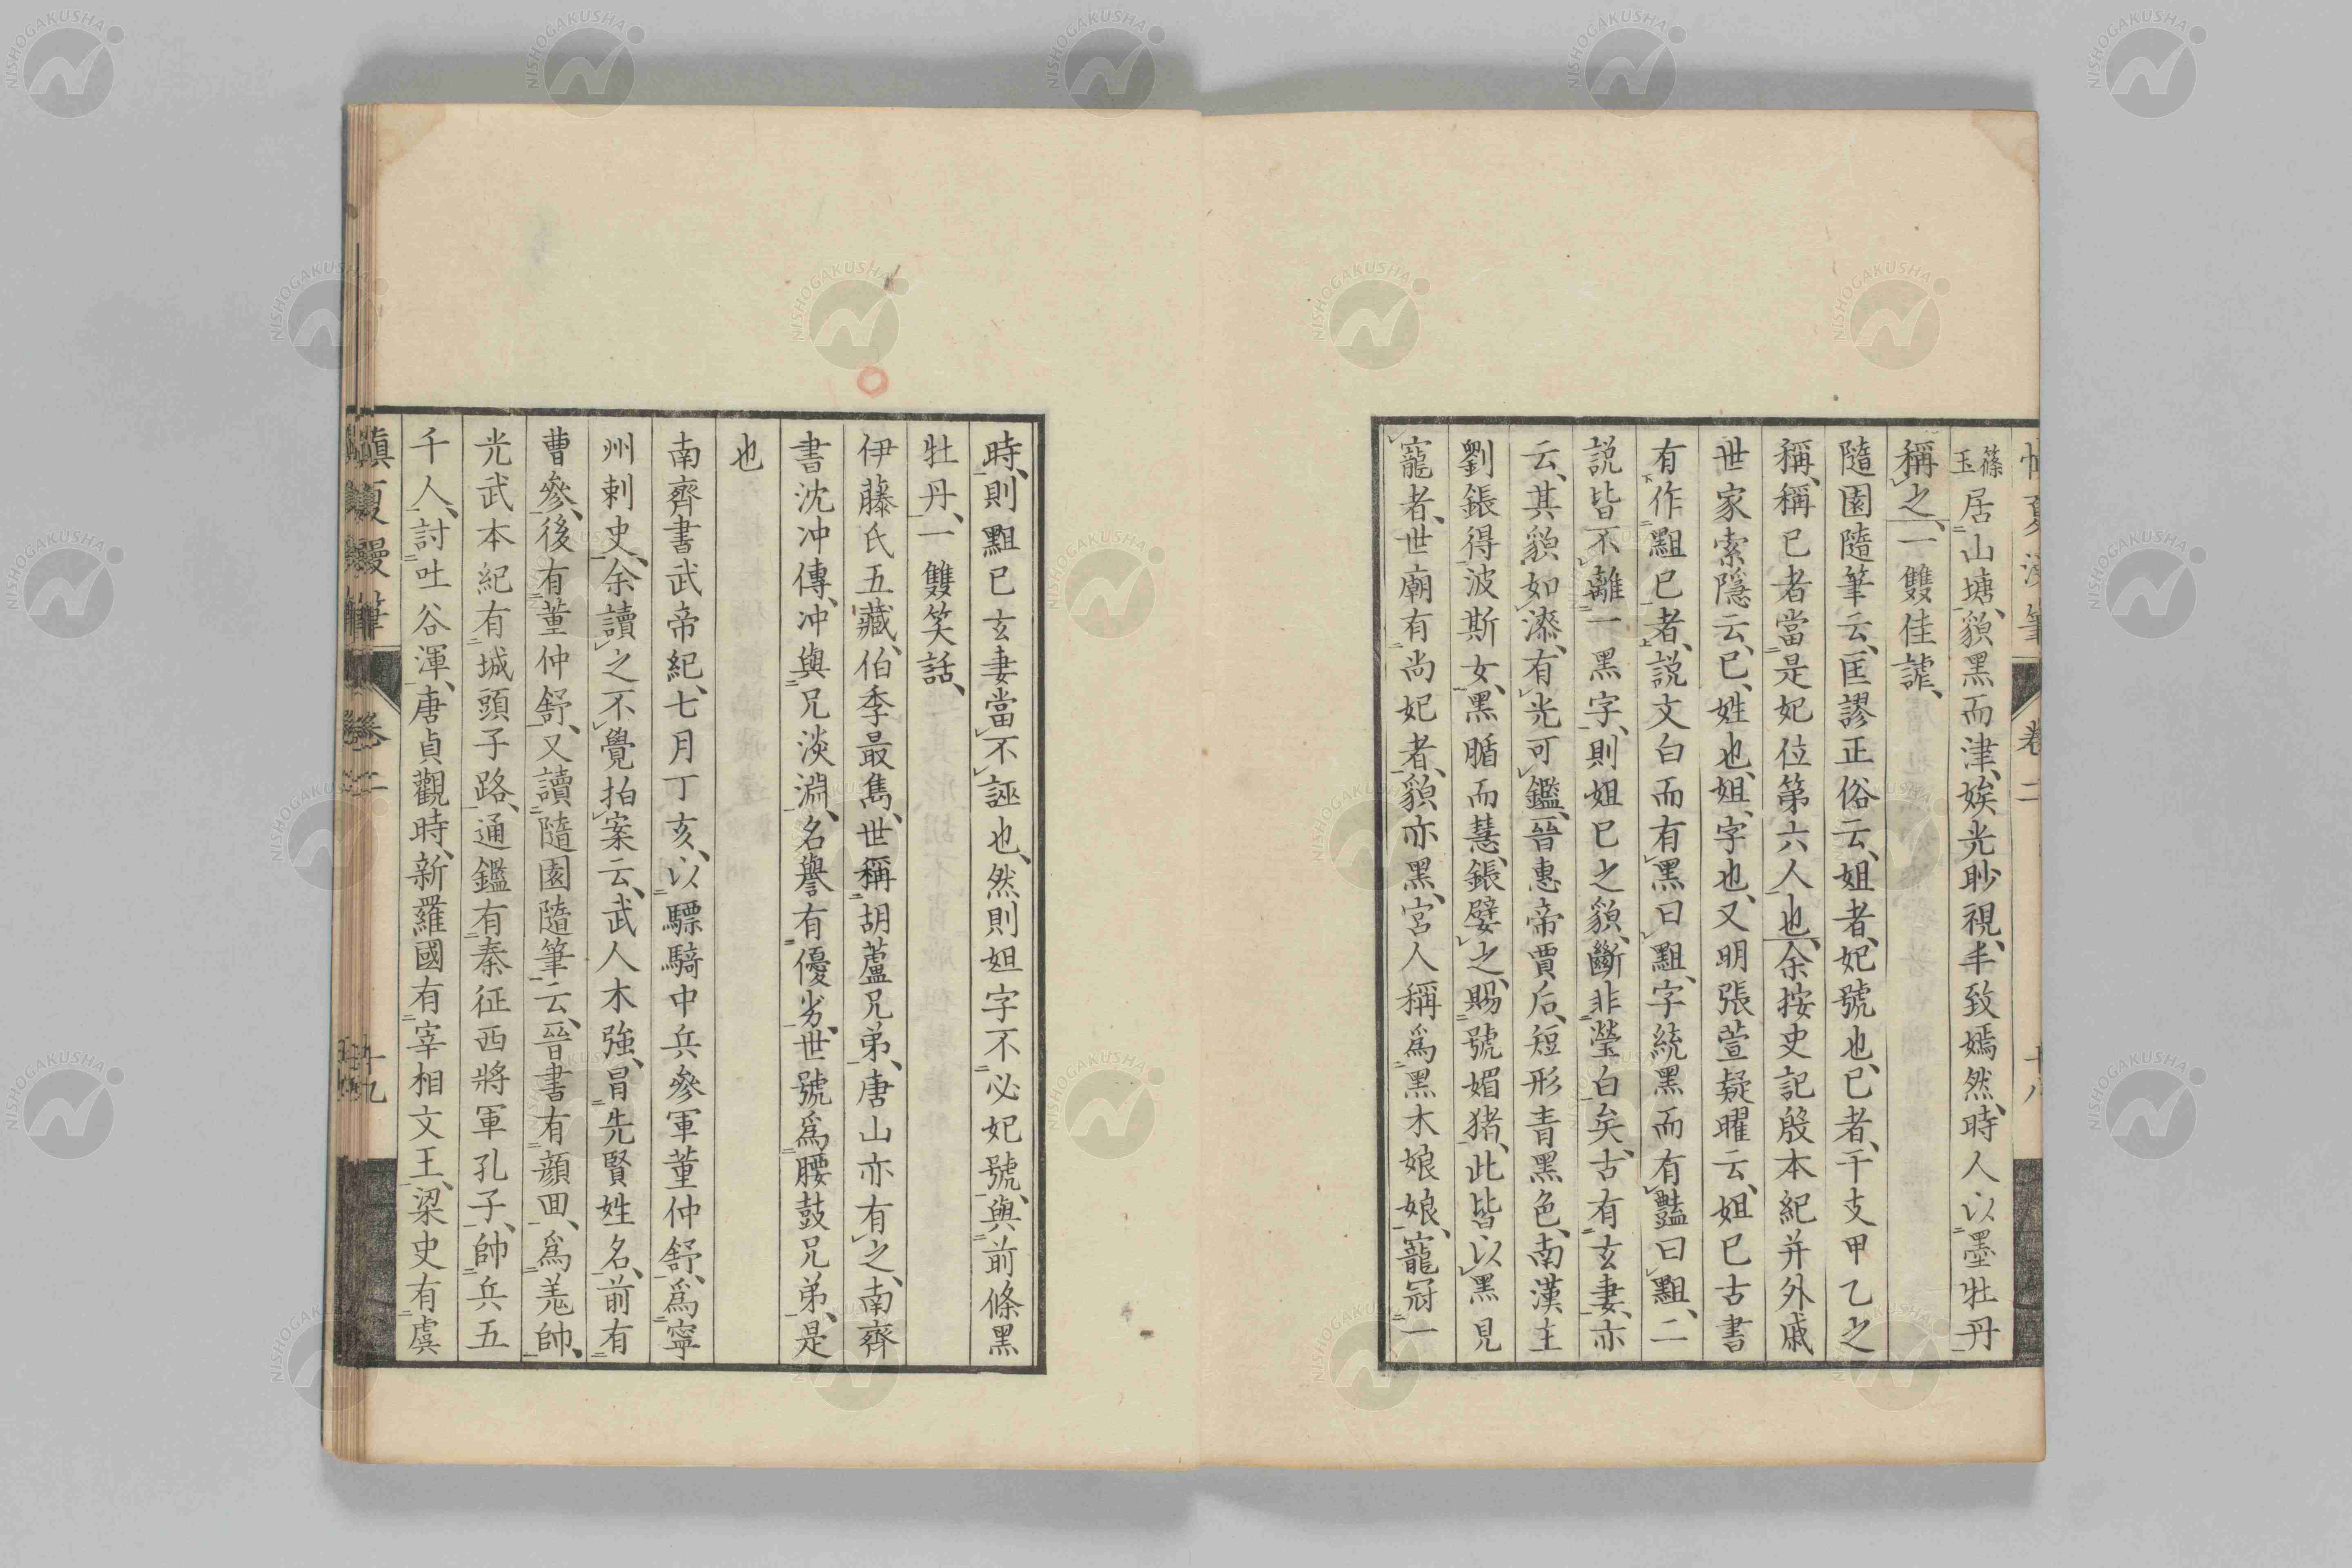 篠玉居山塘、貌黑而津、娭光眇視、半致嫣然、時人以墨牡丹
稱之、一雙佳謔、
隨園隨筆云、匡謬正俗云、妲者、妃號也、已者、干支甲乙之
稱、稱已者當是妃位第六人也、余按史記殷本紀并外戚
世家索隱云、已、姓也、妲、字也、又明張萱疑曜云、妲已古書
有作黰已者、說文白而有黑曰黰、字統黑而有豔曰黰、二
說皆不離一黑字、則妲已之貌、斷非瑩白矣、古有玄妻、亦
云、其貌如漆、有光可鑑、晉惠帝賈后、短形青黑色、南漢主
劉鋹得波斯女、黑腯而慧、鋹嬖之、賜號媚猪、此皆以黑見
寵者、世廟有尚妃者、貌亦黑、宮人稱爲黑木娘娘、寵冠一
時、則黰已玄妻當不誣也、然則妲字不必妃號、與前條黑
牡丹、一雙笑話、
伊藤氏五藏、伯季最雋、世稱胡蘆兄弟、唐山亦有之、南齊
書沈冲傳、冲與兄淡淵、名譽有優劣、世號爲腰鼓兄弟、是
也
南齊書武帝紀、七月丁亥、以驃騎中兵參軍董仲舒、爲寧
州刺史、余讀之不覺拍案云、武人木強、冒先賢姓名、前有
曹參、後有董仲舒、又讀隨園隨筆云、晉書有顏回、爲羌帥、
光武本紀有城頭子路、通鑑有秦征西將軍孔子、帥兵五
千人、討吐谷渾、唐貞觀時、新羅國有宰相文王、梁史有虞
慎夏漫筆 卷二 十九